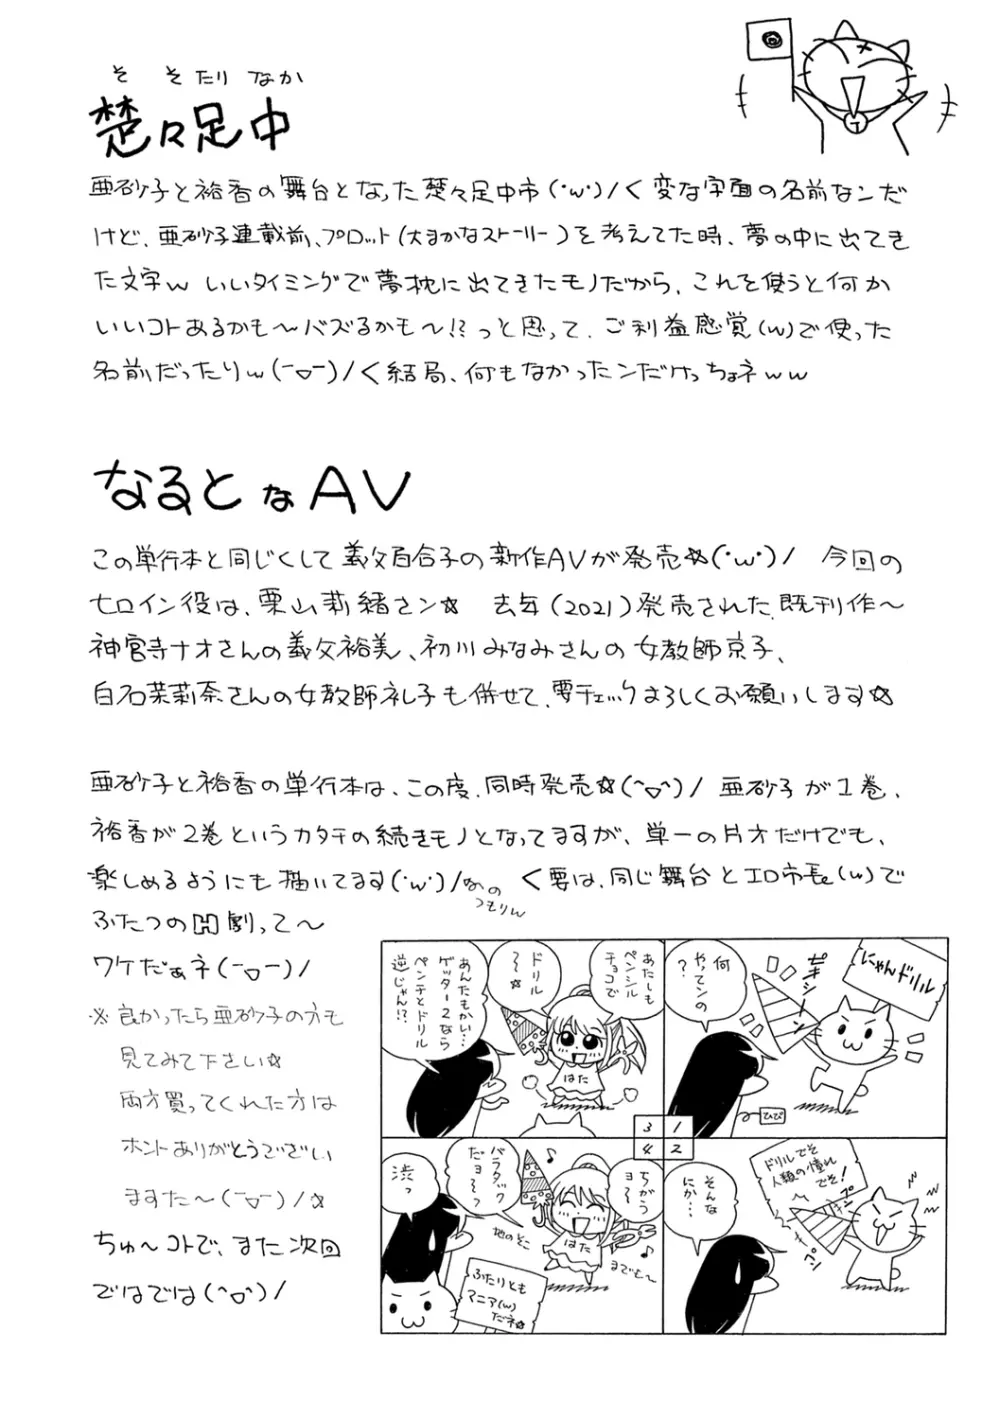 そ そ たり なか
楚々足中
亜砂子と裕香の舞台となった楚々足中市(･w･)/く変な字面の名前なンだ
けど、亜砂子連載前、プロット(大まかなストーリー)を考えてた時、夢の中に出てき
た文字w いいタイミングで夢枕に出てきたモノだから、これを使うと何か
いいコトあるかも〜バズるかも〜!?っと思って、ご利益感覚(w)で使った
名前だったりw(ー▽ー)/く結局、何もなかったンだけっちょネww
なるとなAV
この単行本と同じくして義父百合子の新作AVが発売☆(･w･)/ 今回の
ヒロイン役は、栗山莉緒さン☆ 去年(2021)発売された、既刊作〜
神宮寺ナオさんの義父裕美、初川みなみさんの女教師京子、
白石茉莉奈さんの女教師礼子も併せて、要チェックよろしくお願いします☆
亜砂子と裕香の単行本は、この度、同時発売☆(^▽^)/ 亜砂子が1巻、
裕香が2巻というカタチの続きモノとなってますが、単一の片方だけでも、
楽しめるようにも描いてます(･w･)/なの
つもりw
く要は、同じ舞台とエロ市長(w)で
ふたつのH劇って〜
ワケだぁネ(ー▽ー)/
※良かったら亜砂子の方も
見てみて下さい☆
両方買ってくれた方は
ホントありがとうござい
ますた〜(ー▽ー)/☆
ちゅ〜コトで、また次回
ではでは(^▽^)/
にゃんドリル
ギュイーン
何
やってンの
?
ひび
1
ドリルでそ
人類の憧れ
でそ!
そんな
にか…
2
あたしも
ペンシル
チョコで
ドリル
〜☆
はた
あんたもかい…
ゲッター2なら
ペンチとドリル
逆じゃん!?
3
ちがう
ョ〜
はた
バラタック
だョ〜っ
地のそこ
までも〜
渋っ
ふたりとも
マニア(w)
だネ☆
4